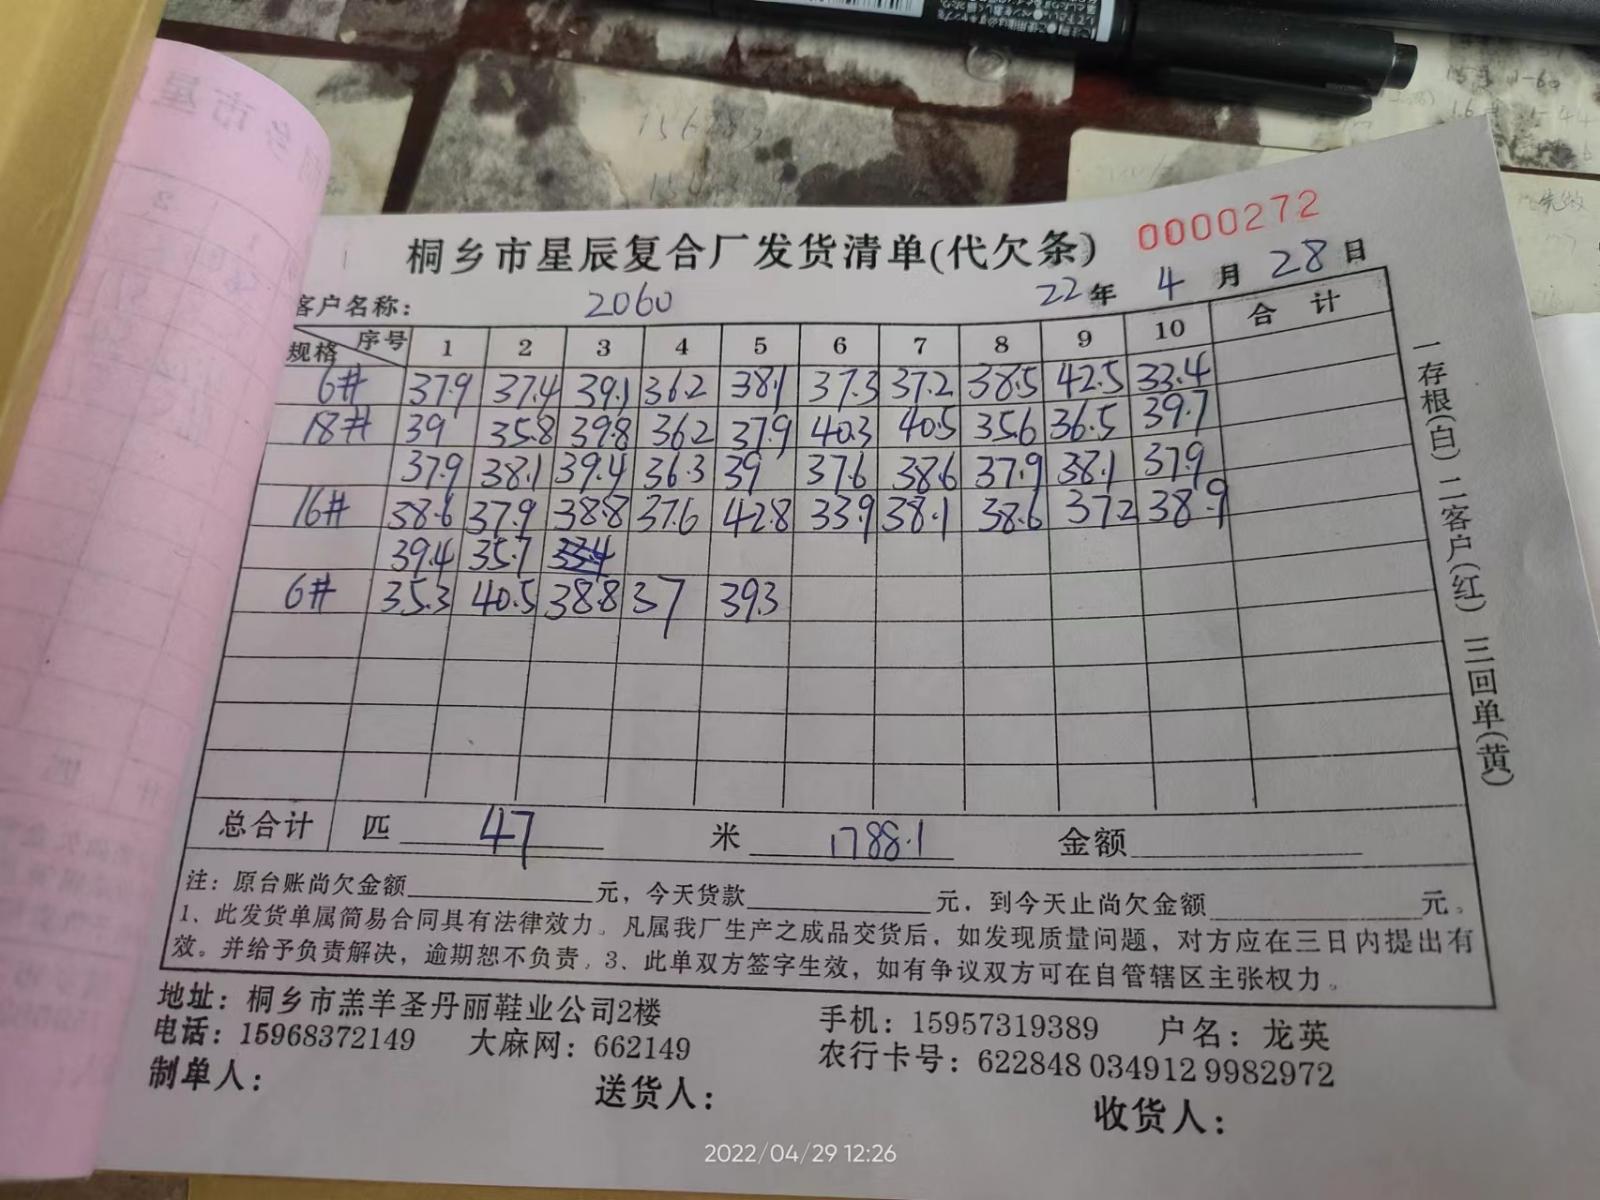 桐乡市星辰复合厂发货清单(代欠条) 0000272
客户名称: 2060 22年 4月 28日
规格 序号 1 2 3 4 5 6 7 8 9 10 合计
6# 37.9 37.4 39.1 36.2 38.1 37.3 37.2 38.5 42.5 33.4
18# 39 35.8 39.8 36.2 37.9 40.3 40.5 35.6 36.5 39.7
37.9 38.1 39.4 36.3 39 37.6 38.6 37.9 38.1 37.9
16# 38.6 37.9 38.8 37.6 42.8 33.9 38.1 38.6 37.2 38.9
39.4 35.7
6# 35.3 40.5 38.8 37 39.3
总合计 匹 47 米 1788.1 金额
注: 原台账尚欠金额 元, 今天货款 元, 到今天止尚欠金额 元。
1、此发货单属简易合同具有法律效力。凡属我厂生产之成品交货后, 如发现质量问题, 对方应在三日内提出有
效。并给予负责解决, 逾期恕不负责, 3、此单双方签字生效, 如有争议双方可在自管辖区主张权力。
地址: 桐乡市羔羊圣丹丽鞋业公司2楼 手机: 15957319389 户名: 龙英
电话: 15968372149 大麻网: 662149 农行卡号: 622848 034912 9982972
制单人: 送货人: 收货人:
一存根(白) 二客户(红) 三回单(黄)
2022/04/29 12:26